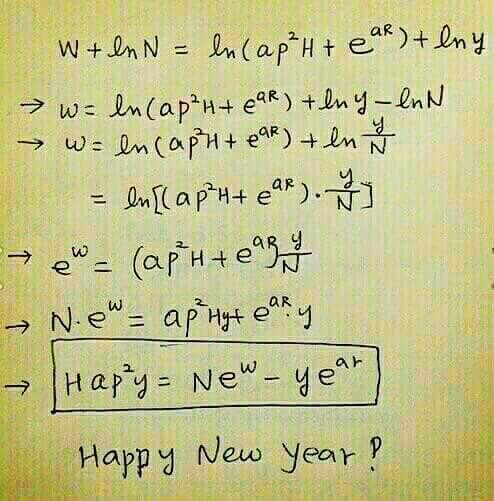 W + lnN = ln(ap²H + e^aR) + lny
→ w = ln(ap²H + e^aR) + lny - lnN
→ w = ln(ap²H + e^aR) + ln y/N
= ln[(ap²H + e^aR) · y/N]
→ e^w = (ap²H + e^aR) y/N
→ N·e^w = ap²Hy + e^aR·y
→ Hap²y = Ne^w - ye^ar
Happy New Year!